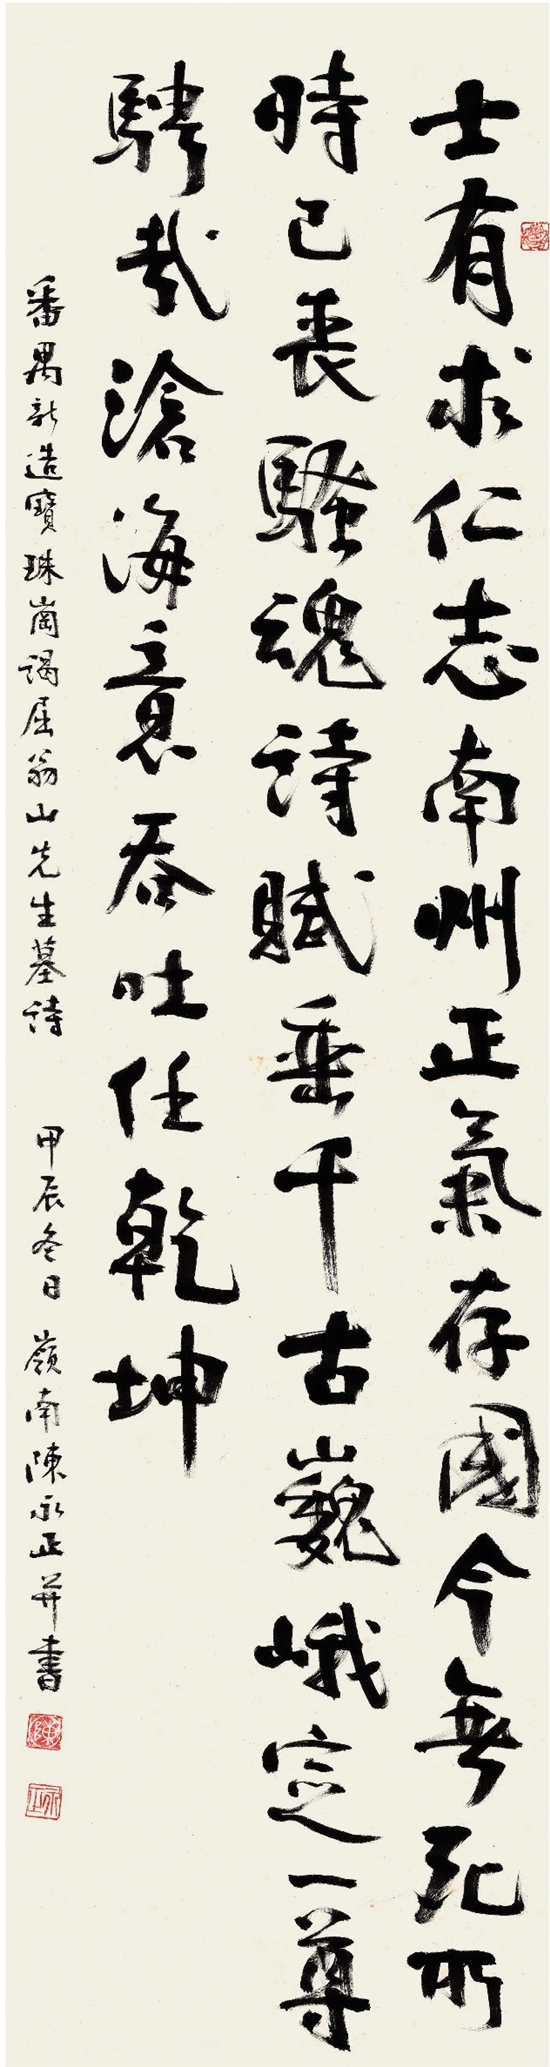 士有求仁志南州正氣存國今無死所
時已喪騷魂詩賦垂千古巍峨定一尊
騁哉滄海意吞吐任乾坤
番禺新造寶珠崗謁屈翁山先生墓詩 甲辰冬日 嶺南陳永正并書
陳
永正